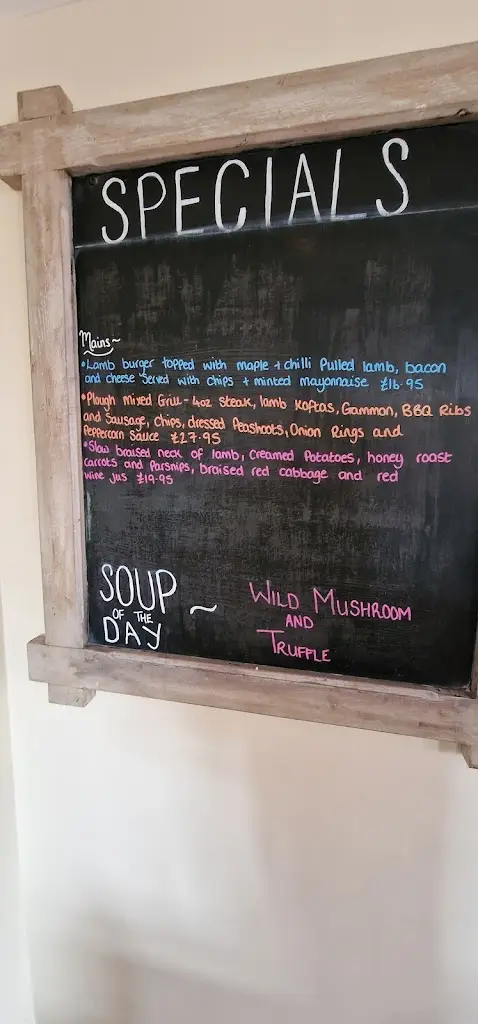 SPECIALS
Mains~
•Lamb burger topped with maple + chilli Pulled lamb, bacon
and cheese served with chips + minted mayonnaise £16.95
•Plough mixed Grill - 4oz steak, lamb Koftas, Gammon, BBQ Ribs
and Sausage, chips, dressed Peashoots, Onion Rings and
Peppercorn Sauce £27.95
•Slow braised neck of lamb, Creamed Potatoes, honey roast
carrots and Parsnips, braised red cabbage and red
wine jus £19.95
SOUP
OF THE
DAY ~
WILD MUSHROOM
AND
TRUFFLE